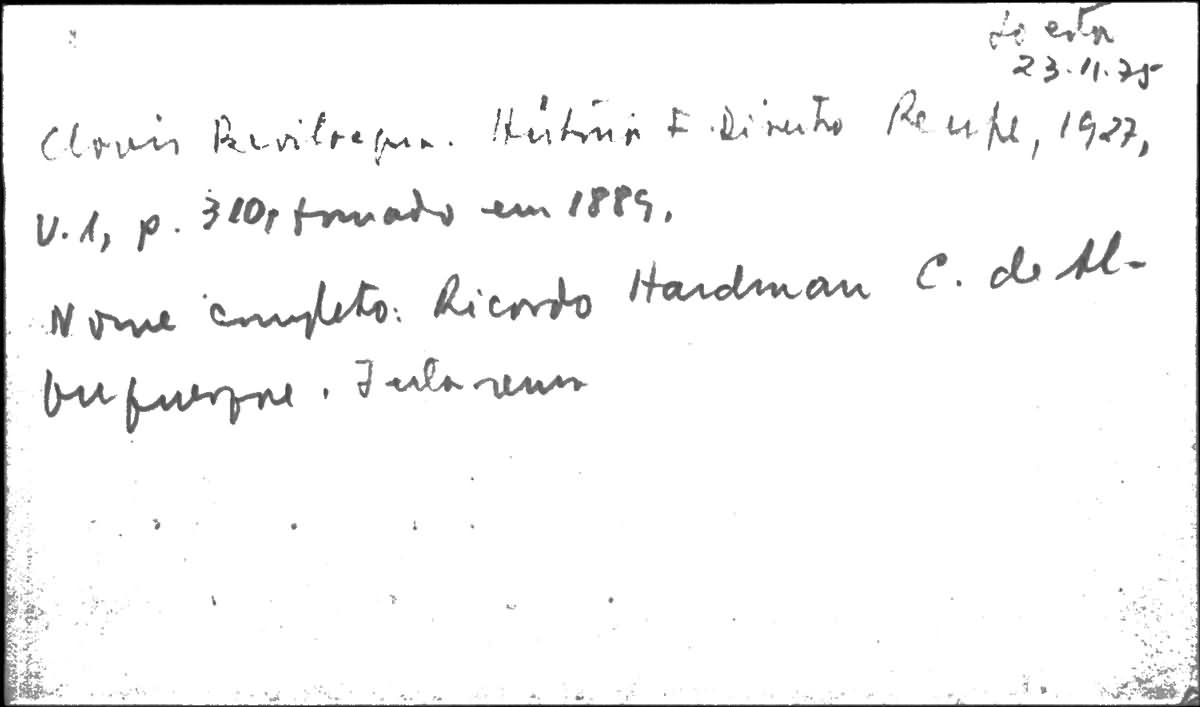 23.11.75
Clovis Bevilaqua. História F. Direito Recife, 1927,
V.1, p. 310, formado em 1889.
Nome completo: Ricardo Hardman C. de Al-
buquerque.